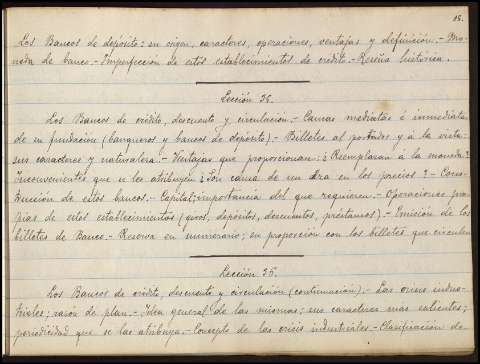 15.
Los Bancos de depósito: su origen, caracteres, operaciones, ventajas y definición.- Mo-
neda de banco.- Imperfección de estos establecimientos de crédito.- Reseña histórica.
Lección 34.
Los Bancos de crédito, descuento y circulación.- Causas mediatas é inmediatas
de su fundación (banqueros y bancos de depósito).- Billetes al portador y á la vista:
sus caracteres y naturaleza.- Ventajas que proporcionan: ¿Reemplazan á la moneda?
Inconvenientes que se les atribuyen ¿Son causa de un alza en los precios?- Cons-
titución de estos bancos.- Capital; importancia del que requieren.- Operaciones pro-
pias de estos establecimientos (giros, depósitos, descuentos, préstamos).- Emisión de los
billetes de Banco.- Reserva en numerario; su proporción con los billetes que circulen
Lección 35.
Los Bancos de crédito, descuento y circulación (continuación).- Las crisis indus-
triales; razón de plan.- Idea general de las mismas; sus caracteres mas salientes;
periodicidad que se las atribuye.- Concepto de las crisis industriales.- Clasificación de